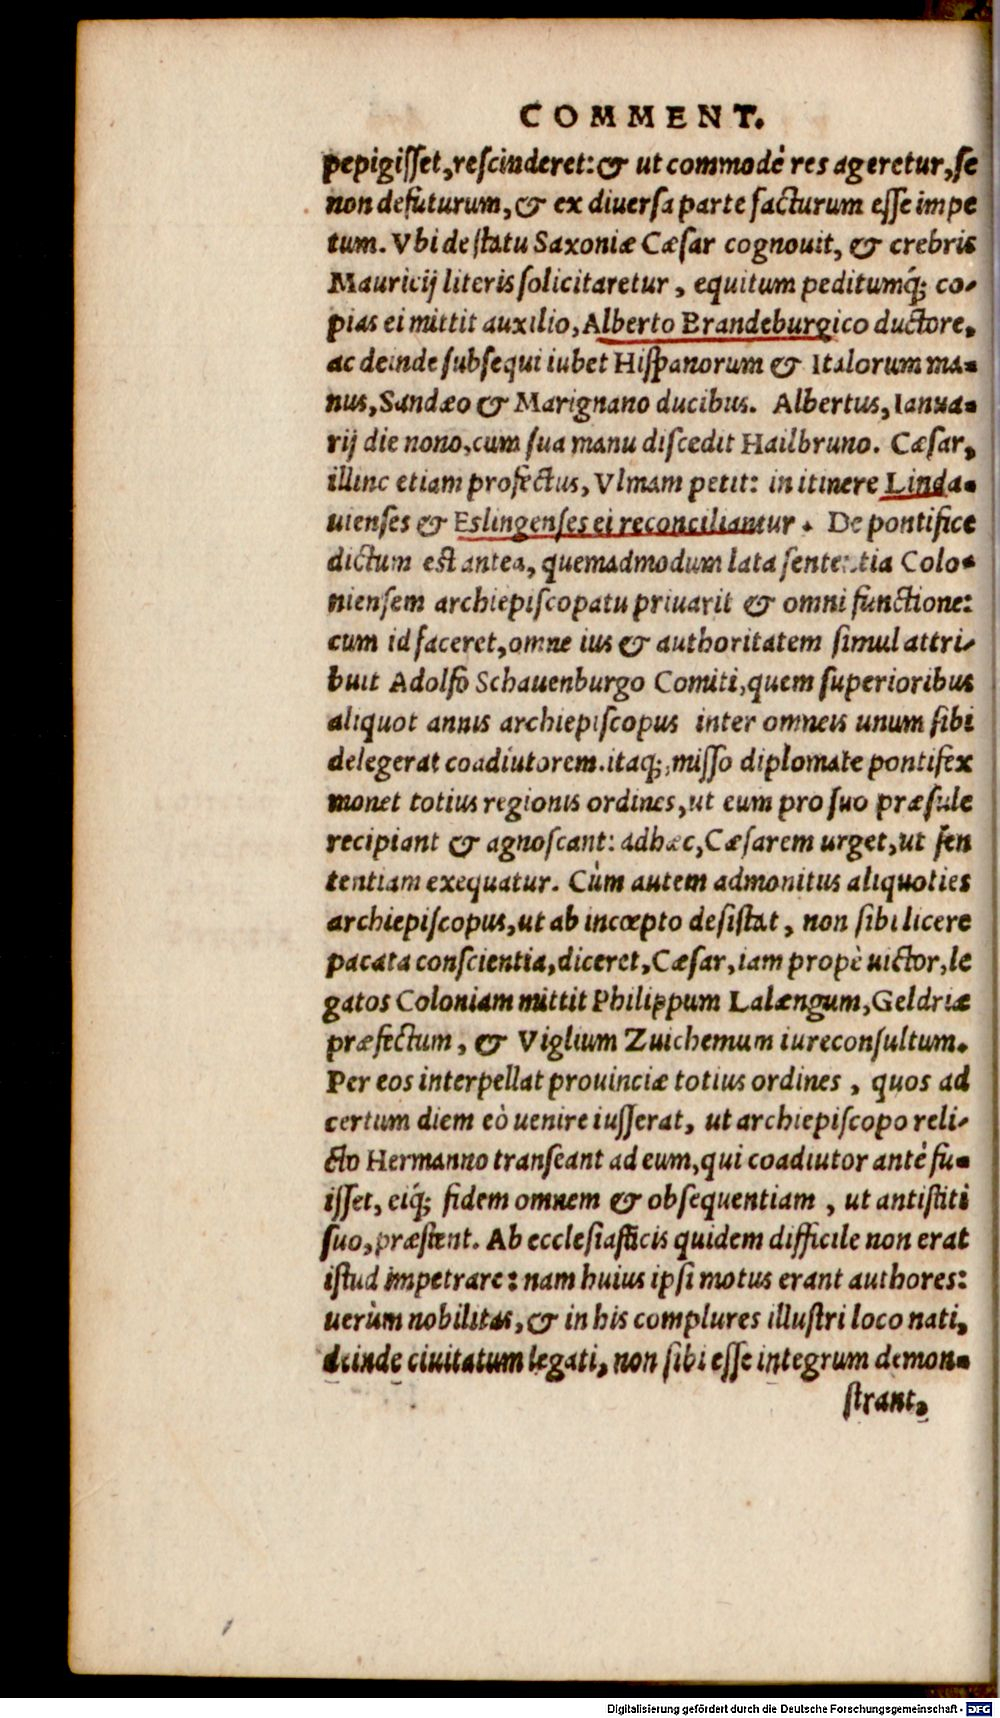 COMMENT.
pepigisset, rescinderet: & ut commodè res ageretur, se
non defuturum, & ex diuersa parte facturum esse impe
tum. Vbi de statu Saxoniæ Cæsar cognouit, & crebris
Mauricij literis solicitaretur, equitum peditumq́; co-
pias ei mittit auxilio, Alberto Brandeburgico ductore,
ac deinde subsequi iubet Hispanorum & Italorum ma-
nus, Sandæo & Marignano ducibus. Albertus, Ianua-
rij die nono, cum sua manu discedit Hailbruno. Cæsar,
illinc etiam profectus, Vlmam petit: in itinere Linda-
uienses & Eslingenses ei reconciliantur. De pontifice
dictum est antea, quemadmodum lata sententia Colo-
niensem archiepiscopatu priuarit & omni functione:
cum id faceret, omne ius & authoritatem simul attri-
buit Adolfo Schauenburgo Comiti, quem superioribus
aliquot annis archiepiscopus inter omneis unum sibi
delegerat coadiutorem. itaq;, misso diplomate pontifex
monet totius regionis ordines, ut eum pro suo præsule
recipiant & agnoscant: adhæc, Cæsarem urget, ut sen
tentiam exequatur. Cùm autem admonitus aliquoties
archiepiscopus, ut ab incœpto desistat, non sibi licere
pacata conscientia, diceret, Cæsar, iam propè uictor, le
gatos Coloniam mittit Philippum Lalængum, Geldriæ
præfectum, & Viglium Zuichemum iureconsultum.
Per eos interpellat prouinciæ totius ordines, quos ad
certum diem eò uenire iusserat, ut archiepiscopo reli-
cto Hermanno transeant ad eum, qui coadiutor antè fu-
isset, eiq́; fidem omnem & obsequentiam, ut antistiti
suo, præstent. Ab ecclesiasticis quidem difficile non erat
istud impetrare: nam huius ipsi motus erant authores:
uerùm nobilitas, & in his complures illustri loco nati,
deinde ciuitatum legati, non sibi esse integrum demon-
strant,
Digitalisierung gefördert durch die Deutsche Forschungsgemeinschaft - DFG